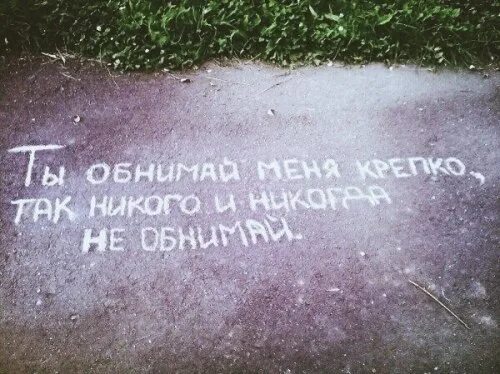 Ты ОБНИМАЙ МЕНЯ КРЕПКО,
ТАК НИКОГО И НИКОГДА
НЕ ОБНИМАЙ.